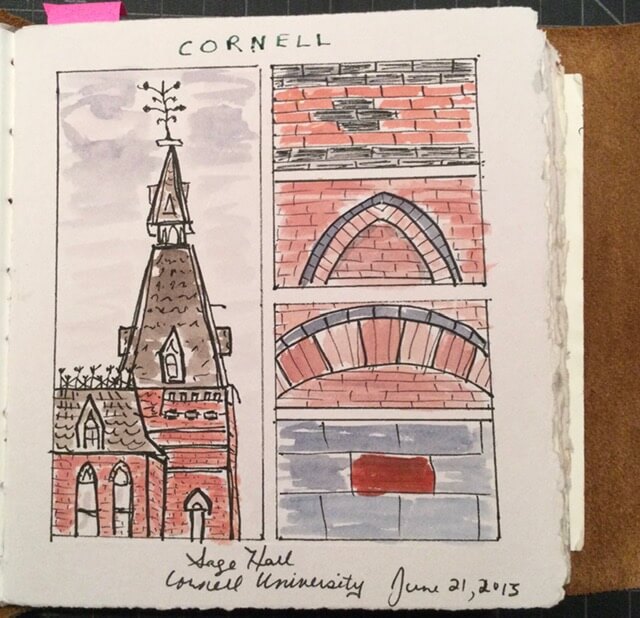 CORNELL
Sage Hall
Cornell University June 21, 2015